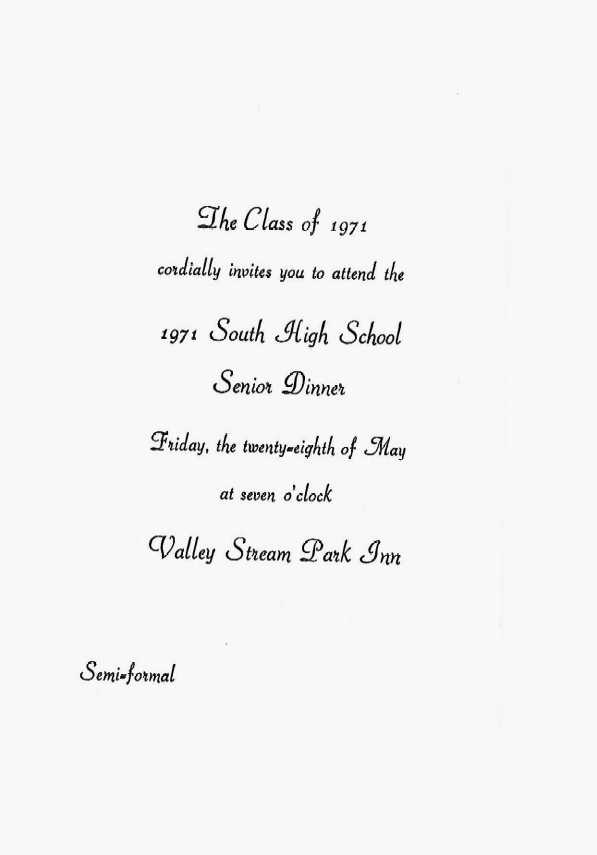 The Class of 1971
cordially invites you to attend the
1971 South High School
Senior Dinner
Friday, the twenty-eighth of May
at seven o'clock
Valley Stream Park Inn
Semi-formal